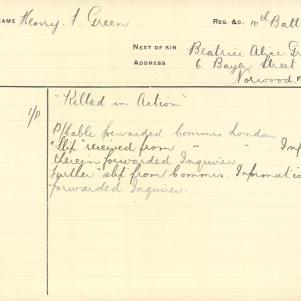 NAME Henry. F. Green. REG. &C. 10th Batt
NEXT OF KIN Beatrice Alice Gr
ADDRESS 6 Bayer Street
Norwood
"Killed in Action"
1/P
P/Cable forwarded Commis London
"Slip" received from " " . Inf
therein forwarded Inquirer
Further "slip from Commis. Information
forwarded Inquirer.